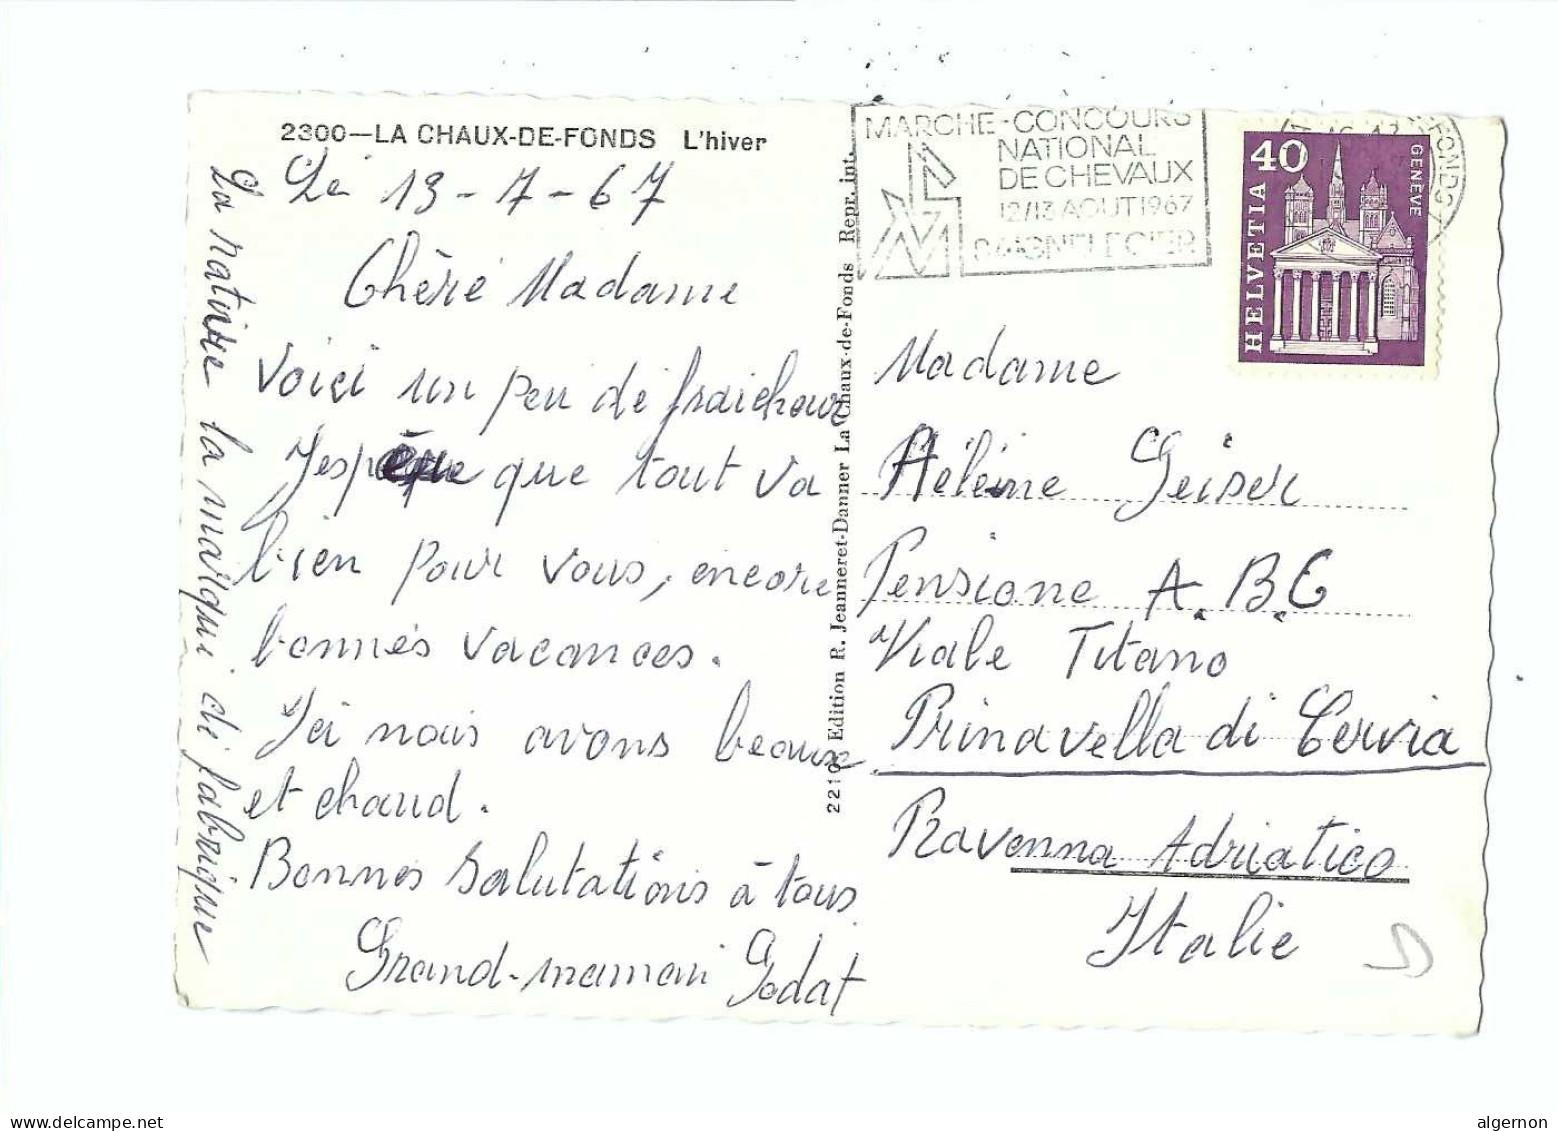 2300—LA CHAUX-DE-FONDS L'hiver
Le 13-7-67
Chère Madame
Voici un peu de fraicheur
J'espère que tout va
bien pour vous, encore
bonnes vacances.
Ici nous avons beaux
et chaud.
Bonnes Salutations à tous
Grand-maman Godat
La rative la marqui di fabrique
2210 Edition R. Jeanneret-Danner La Chaux-de-Fonds Repr. int.
MARCHE-CONCOURS
NATIONAL
DE CHEVAUX
12/13 AOUT 1967
SAIGNELEGIER
FONDS
40
GENEVE
HELVETIA
Madame
Hélène Geiser
Pensione A.B.C
Viale Titano
Prinavella di Cervia
Ravenna Adriatico
Italie
algernon
delcampe.net